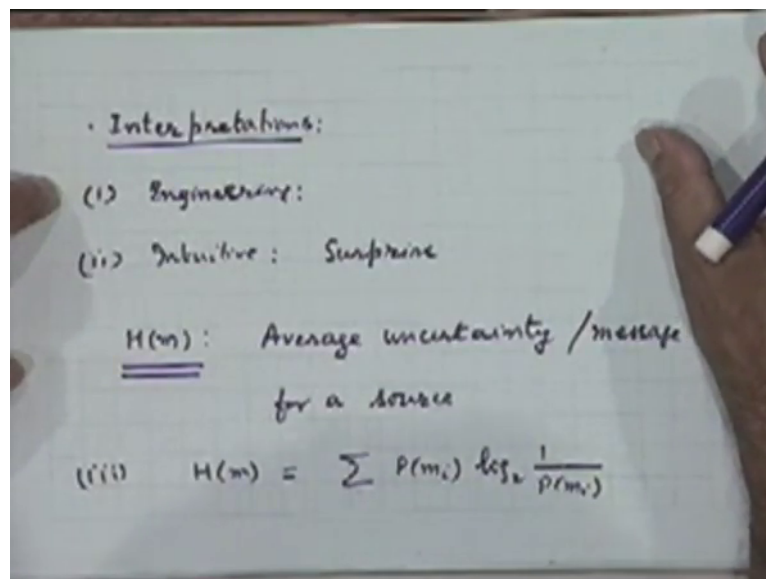 · Interpretations:
(i) Engineering:
(ii) Intuitive: Surprise
H(m): Average uncertainty / message
for a source
(iii) H(m) = ∑ P(mᵢ) log₂ 1/P(mᵢ)